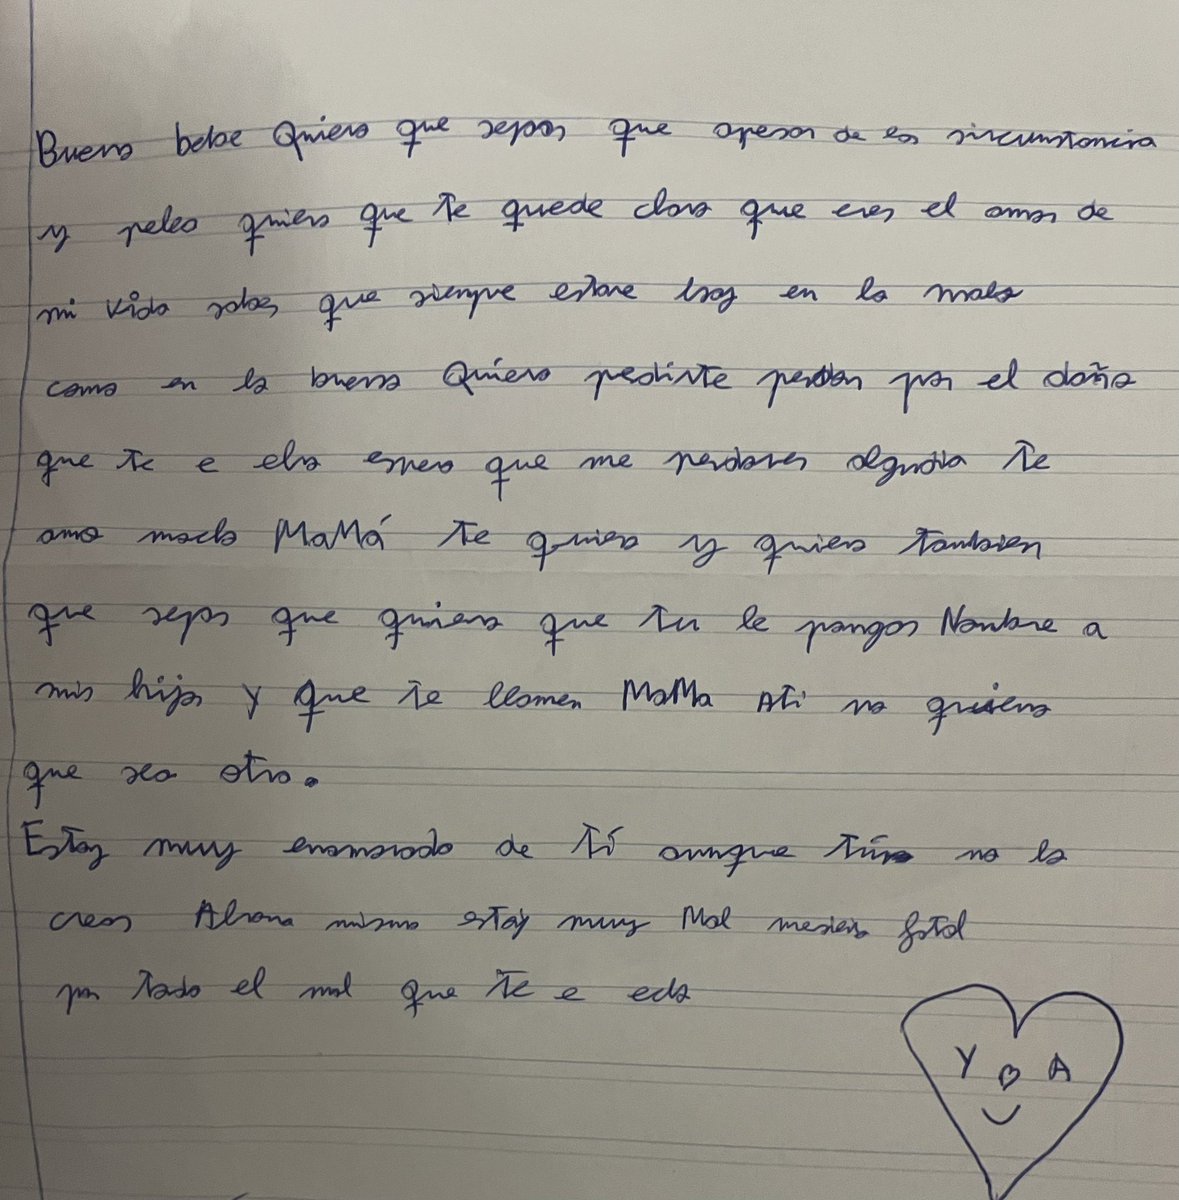 Bueno bebe Quiero que sepas que apesar de las sircumstancia
y peleo quiero que te quede claro que eres el amor de
mi vida sabes que siempre estare hay en la mala
como en la buena Quiero pedirte perdon por el daño
que te e echo espero que me perdones algudia te
amo mucho MaMá te quiero y quiero tambien
que sepas que quiero que tu le pongas Nombre a
mis hijos y que te llamen MaMa Ati no quiero
que sea otra.
Estoy muy enamorado de tí aunque tú no lo
creas Ahora mismo estóy muy Mal mesiento fatal
por todo el mal que te e echo
Y A